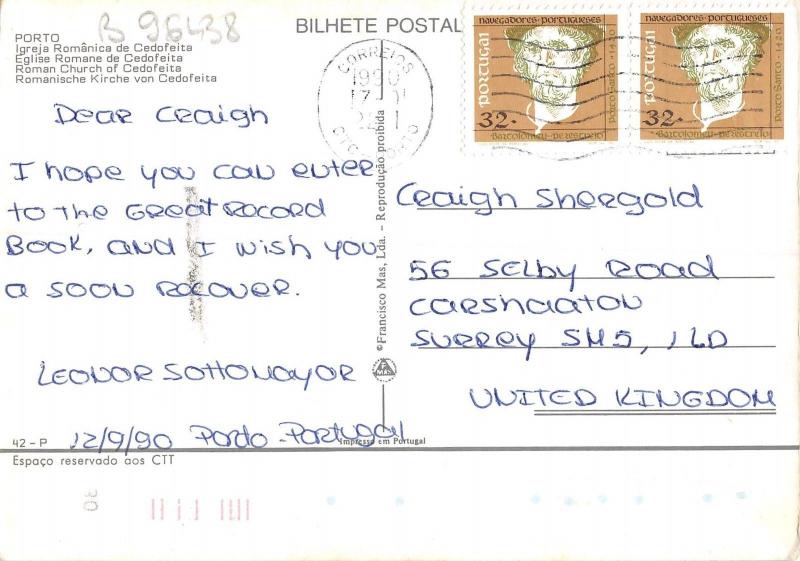 B 96438
BILHETE POSTAL
PORTO
Igreja Românica de Cedofeita
Eglise Romane de Cedofeita
Roman Church of Cedofeita
Romanische Kirche von Cedofeita
Dear Craigh
I hope you can enter
to the Great Record
Book, and I wish you
a soon recover.
Leonor Sottomayor
12/9/90 Porto-Portugal
42 - P
Espaço reservado aos CTT
30
©Francisco Mas, Lda. - Reprodução proibida
Impresso em Portugal
CORREIOS
1990
navegadores portugueses
PORTUGAL
Porto Santo · 1420
32.
Bartolomeu perestrelo
navegadores portugueses
PORTUGAL
Porto Santo · 1420
32.
Bartolomeu perestrelo
Craigh Shergold
56 Selby Road
Carshaaton
Surrey SM5, 1LD
United Kingdom